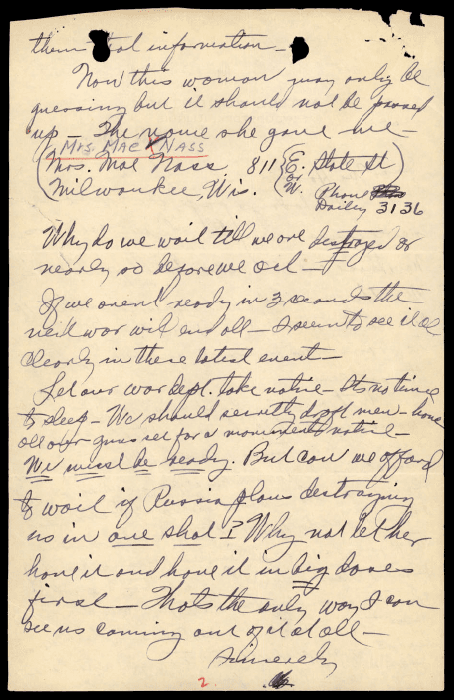 them that information —
Now this woman may only be
guessing but it should not be passed
up — The name she gave me —
Mrs. MAE NASS
(Mrs. Mae Nass 811 {E. or W. State St)
Milwaukee, Wis. Phone
Dailey 3136
Why do we wait till we are destroyed or
nearly so before we act —
If we aren't ready in 3 seconds the
next war will end all — I seem to see it all
clearly in these latest event —
Let our war dept. take notice — Its no time
to sleep — We should secretly draft men — have
all our guns set for a moments notice —
We must be ready. But can we afford
to wait if Russia plans destroying
us in one shot? Why not let her
have it and have it in big doses
first — Thats the only way I can
see us coming out of it at all —
Sincerely
2